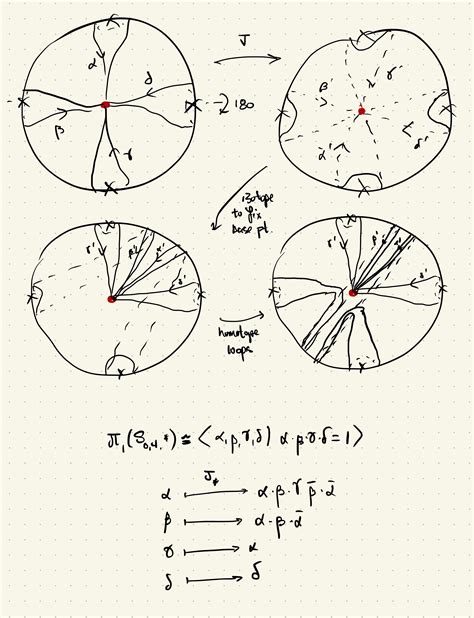 J
α
δ
180
β
γ
β
γ
α'
δ'
isotope
to fix
base pt.
γ'
β'
α'
δ'
γ'
β'
homotope
loops
π₁(S₀,₄,*) ≅ ⟨α,β,γ,δ⟩ α·β·γ·δ=1⟩
J*
α ↦ α·β·γ β̄·ᾱ
β ↦ α·β·ᾱ
γ ↦ α
δ ↦ δ